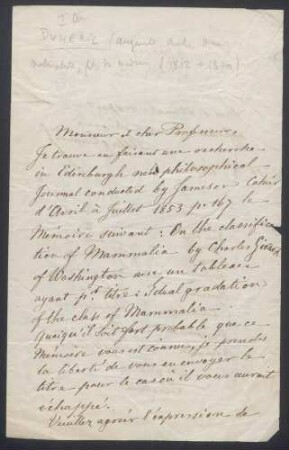 I Dr
DUMERIL (auguste
(1812 + 1870)
Monsieur et cher Professeur,
Je trouve en faisant une recherche
in Edinburgh new philosophical
Journal conducted by Jameson Cahier
d'Avril à Juillet 1853 p. 167 le
Mémoire suivant : On the classifica
tion of Mammalia by Charles Girard
of Washington avec un tableau
ayant pr. titre : gradation
of the class of Mammalia.
Quoiqu'il soit fort probable que ce
Mémoire vous est connu, je prends
la liberté de vous en envoyer le
titre pour le cas où il vous aurait
échappé.
Veuillez agréer l'expression de